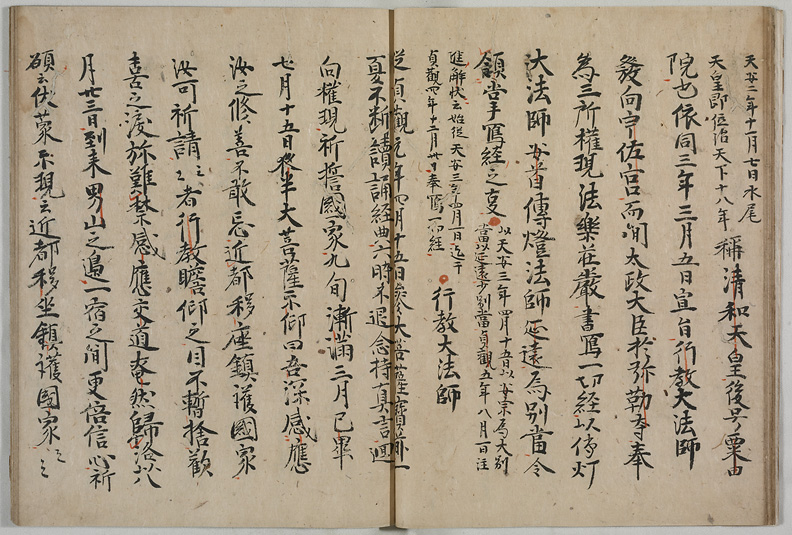 天安二年十一月七日水尾
天皇即位治天下十八年
稱清和天皇後号粟田
院也依同三年三月五日宣旨行教大法師
發向宇佐宮而間太政大臣於弥勒寺奉
為三所權現法樂莊嚴書寫一切經以傳灯
大法師安宗傳燈法師延遠為別當令
領掌寫經之事
以天安三年四月十五日以安宗為大別
當以延遠少別當貞觀五年八月一日注
進解状云始従天安三年四月一日迄于
貞觀四年十二月廿日奉寫一切經
行教大法師
従貞觀元年四月十五日参大菩薩寶前一
夏不断讀誦經典六時不退念持真言廻
向權現祈誓國家九旬漸満三月已畢
七月十五日夜半大菩薩示仰曰吾深感應
汝之修善不敢忘近都移座鎮護國家
汝可祈請々々者行教瞻仰之目不暫捨歡
喜之涙弥難禁感應交道奄然歸給以八
月廿三日到来男山之邊一宿之間更倍信心祈
願云伏蒙示現云近都移坐鎮護國家云々